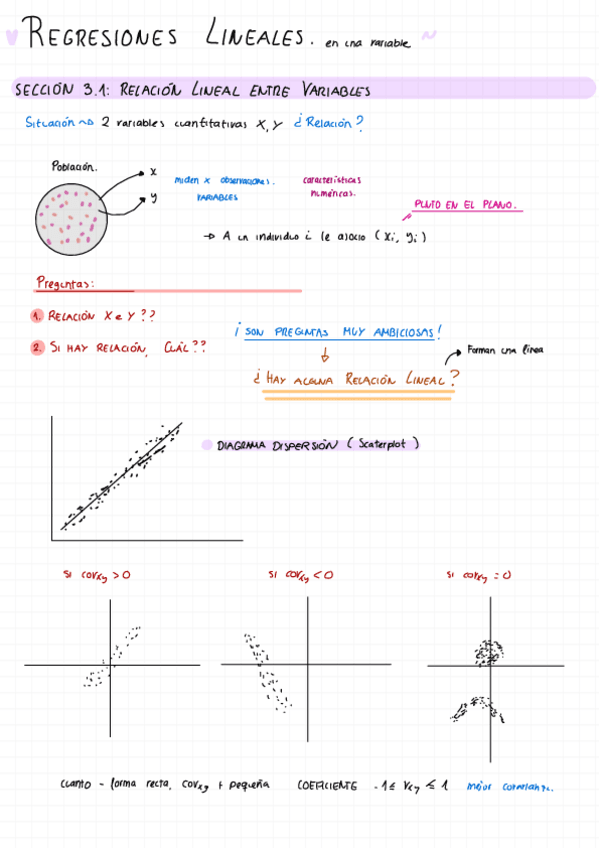 REGRESIONES LINEALES. en una variable
SECCIÓN 3.1: RELACIÓN LINEAL ENTRE VARIABLES
Situación ~> 2 variables cuantitativas X, Y ¿Relación?
Población.
x
y
miden x observaciones.
VARIABLES
características
numéricas.
PUNTO EN EL PLANO.
→ A un individuo i le asocio (xi, yi)
Preguntas:
1. RELACIÓN X e Y ??
2. SI HAY RELACIÓN, CUÁL??
¡SON PREGUNTAS MUY AMBICIOSAS!
Forman una línea
¿HAY ALGUNA RELACIÓN LINEAL?
DIAGRAMA DISPERSIÓN (Scaterplot)
si covxy > 0
si covxy < 0
si covxy = 0
cuanto - forma recta, covxy + pequeña COEFICIENTE -1 ≤ rxy ≤ 1 mejor